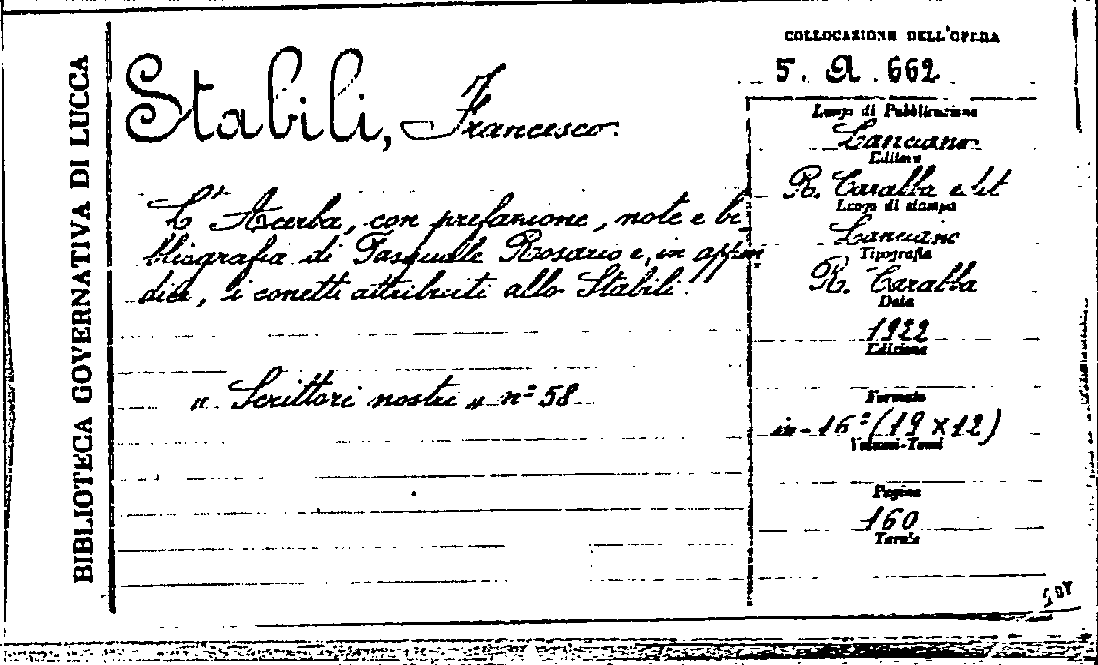 BIBLIOTECA GOVERNATIVA DI LUCCA
Stabili, Francesco.
L'Acerba, con prefazione, note e bi-
bliografia di Pasquale Rosario e, in appen
dice, i sonetti attribuiti allo Stabili.
„ Scrittori nostri „ nº 58
COLLOCAZIONE DELL'OPERA
5. A. 662
Luogo di Pubblicazione
Lanciano
Editore
R. Carabba edit
Luogo di stampa
Lanciano
Tipografia
R. Carabba
Data
1922
Edizione
Formato
in-16º (19 x 12)
Volumi-Tomi
Pagine
160
Tavole